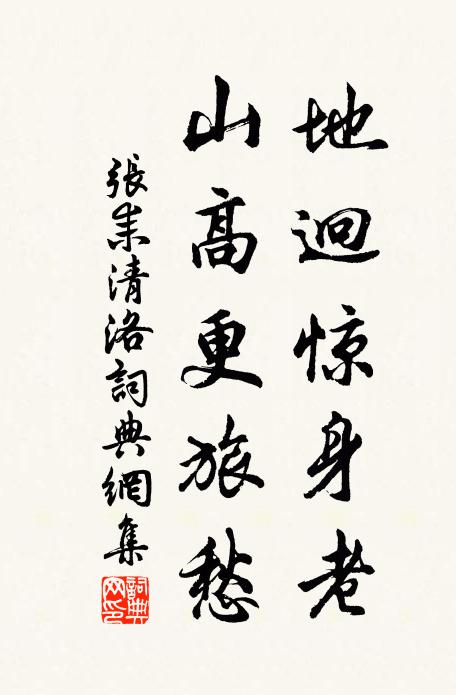 地迥惊身老
山高更旅愁
張耒清洛詞典網集
詞典网印